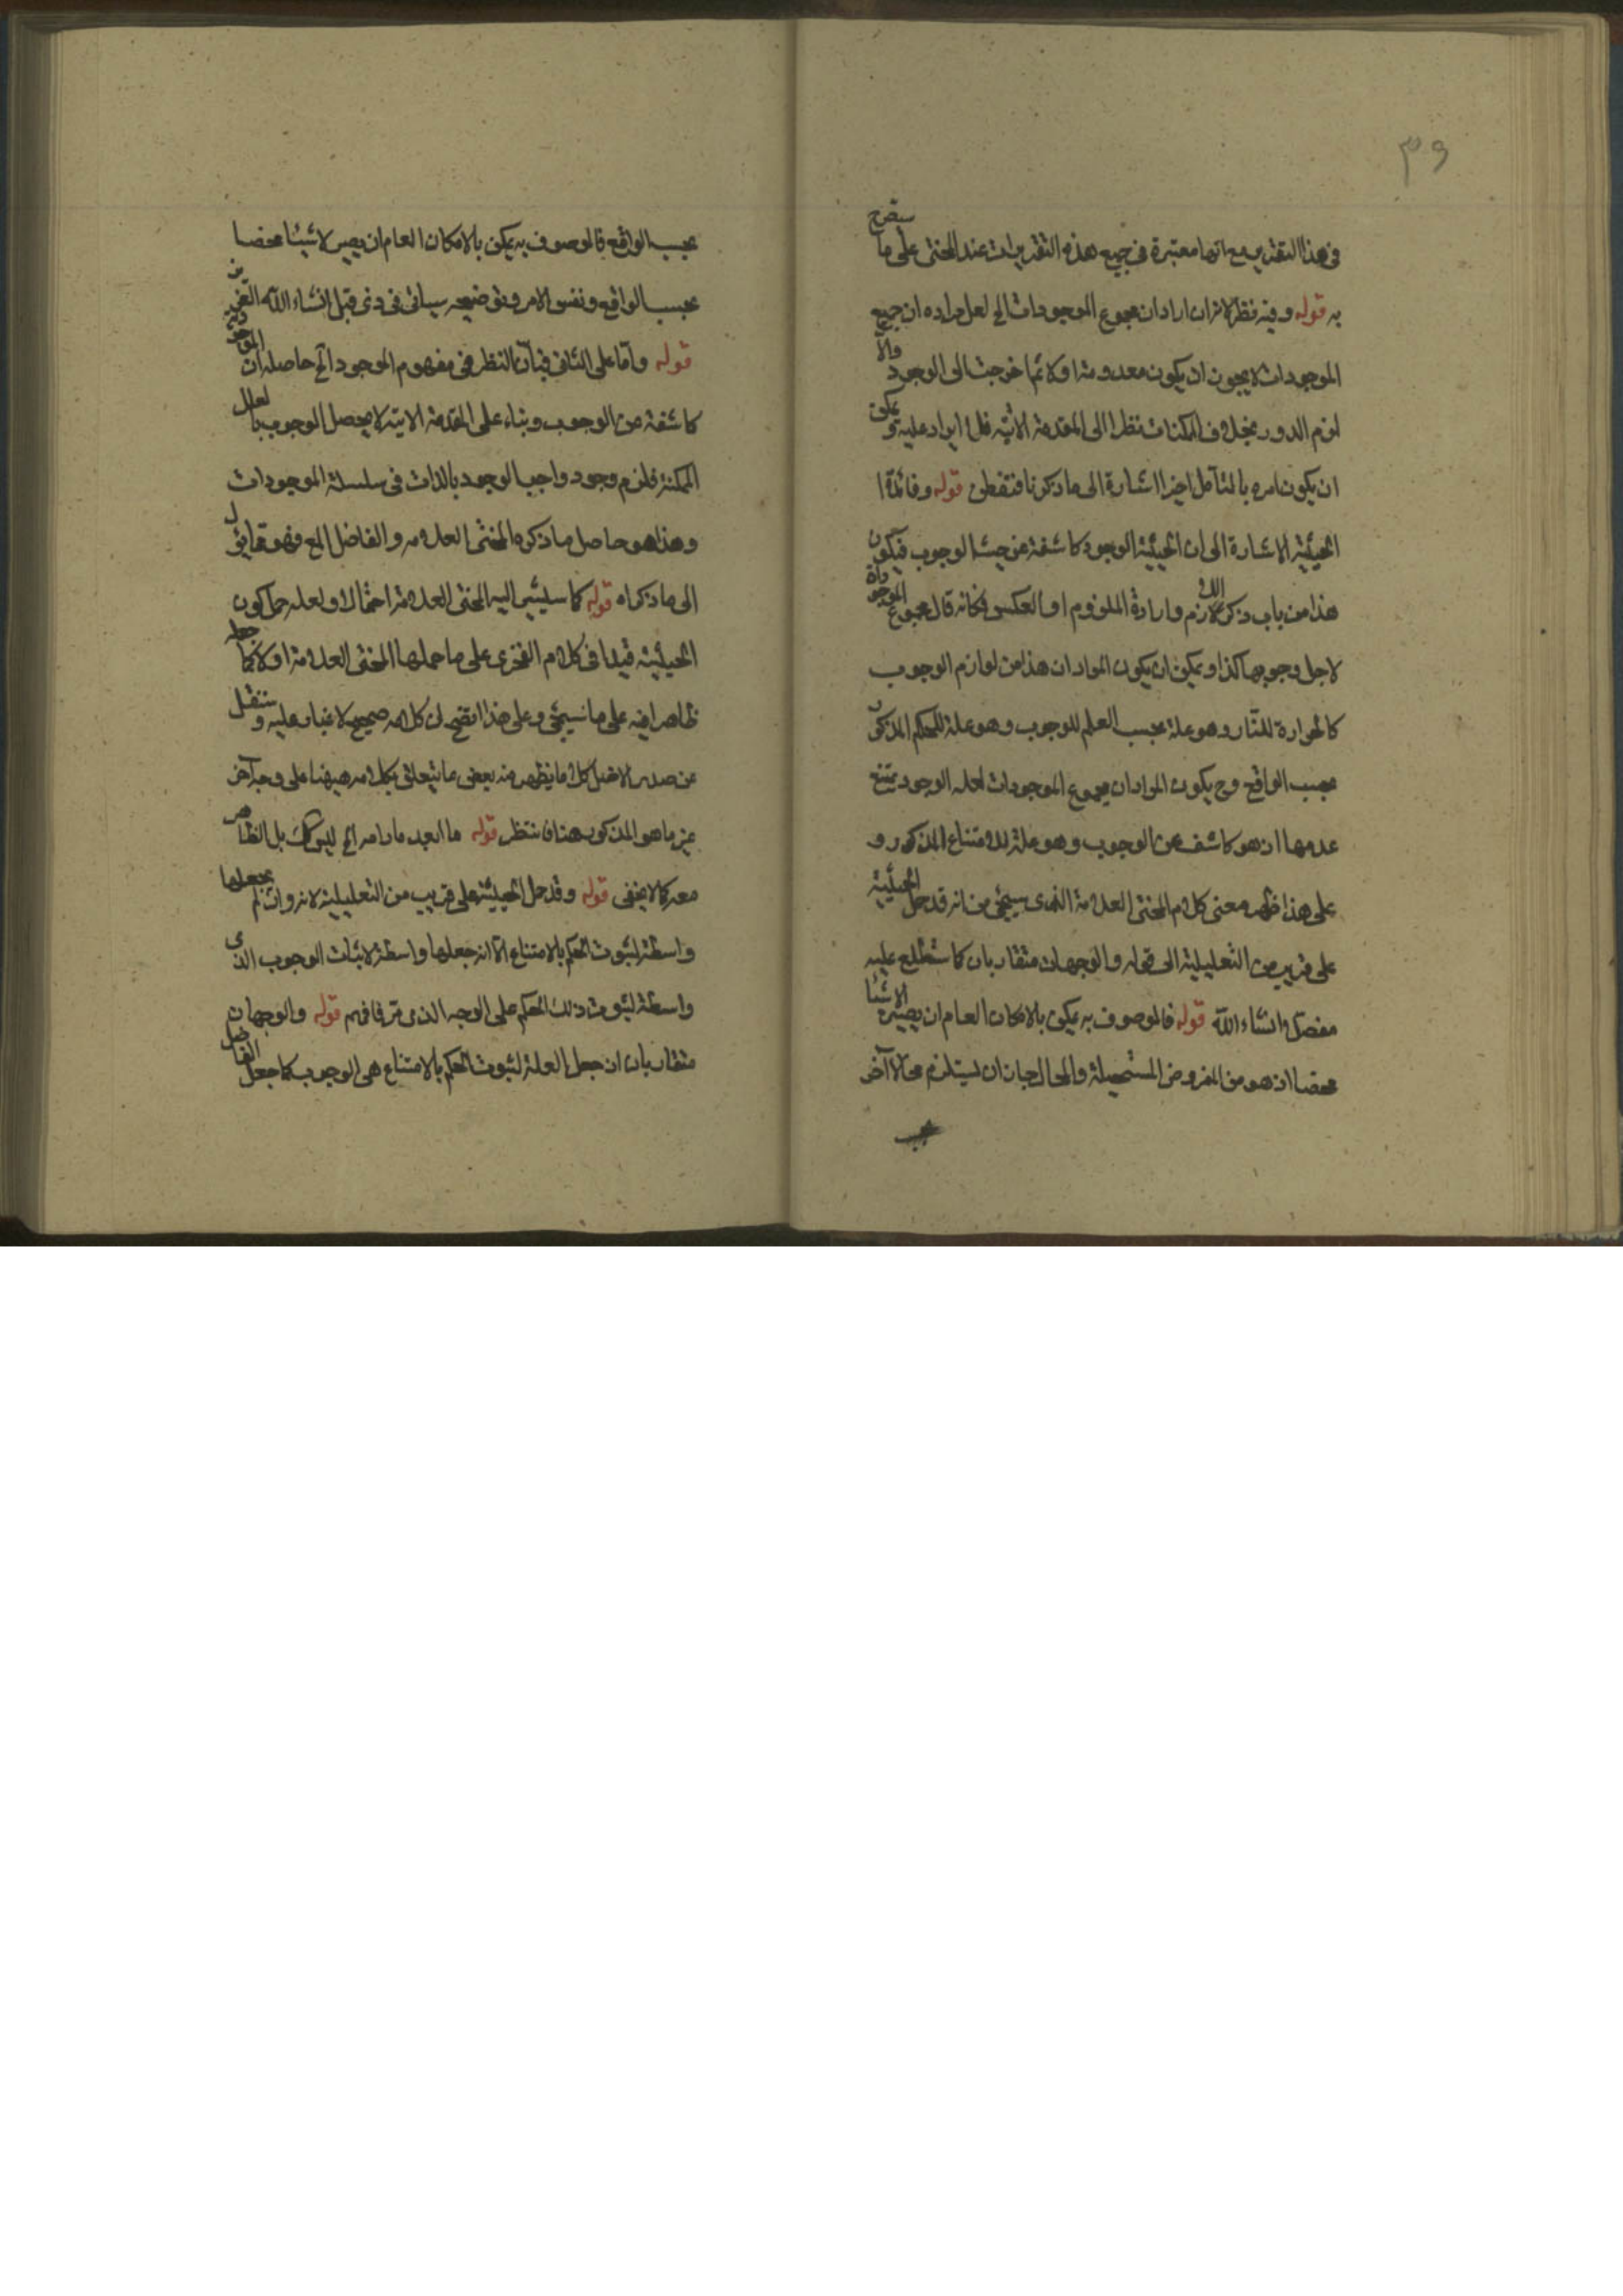 ٣٩
في هذا التقدير مع انها معتبرة في جميع هذه التقديرات عند المحشى على ما سيصرح
به قوله وفيه نظر لانه ان اراد ان مجموع الموجودات الخ لعل مراده ان جميع
الموجودات لا يجوز ان يكون معدومة اولا ثم خرجت الى الوجود والا
لزم الدور بخلاف الممكنات نظرا الى المقدمة الاتية فلا ايراد عليه ويمكن
ان يكون امره بالتأمل اخيرا اشارة الى ما ذكرنا فتفطن قوله وفائدة
الحيثية الاشارة الى ان الحيثية الوجود كاشفة عن حيث الوجوب فيكون
هذا من باب ذكر اللازم وارادة الملزوم او العكس فكانه قال مجموع الموجودات
لاجل وجوبها كذا ويمكن ان يكون المراد ان هذا من لوازم الوجوب
كالحرارة للنار وهو علة بحسب العلم للوجوب وهو علة للحكم المذكور
بحسب الواقع وح يكون المراد ان مجموع الموجودات لعلة الوجود يمتنع
عدمها اذ هو كاشف عن الوجوب وهو علة للامتناع المذكور و
على هذا ظهر معنى كلام المحشى العلامة الذى سيجئ من انه قد حمل الحيثية
على قريب من التعليلية الى قوله والوجهان متقاربان كما ستطلع عليه
مفصلا انشاء الله قوله فالموصوف به يمكن بالامكان العام ان يصير لا شيئا
محضا اذ هو من الفروض المستحيلة والمحال جاز ان يستلزم محالا آخر
بحسب
بحسب الواقع فالموصوف به يمكن بالامكان العام ان يصير لا شيئا محضا
بحسب الواقع ونفس الامر وتوضيحه سياتى في انشاء الله
قوله واما على الثانى فبان النظر في مفهوم الموجود الخ حاصله ان الموجودية
كاشفة عن الوجوب وبناء على المقدمة الاتية لا يحصل الوجوب بالعلل
الممكنة فلزم وجود واجب الوجود بالذات في سلسلة الموجودات
وهذا هو حاصل ما ذكره المحشى العلامه والفاضل فهو
الى ما ذكراه قوله كما سيشير اليه المحشى العلامة احتمالا ولعله حمل كون
الحيثية قيدا في كلام الفخرى على ما حملها المحشى العلامة اولا كما جعله
ظاهرا فيه على ما سيجئ وعلى هذا اتضح ان كلامه صحيح لا غبار عليه و سننقل
عن صدر الافاضل كلاما يظهر منه بعض ما يتعلق بكلامه ههنا على وجه آخر
غير ما هو المذكور هنا فانتظر قوله ما ابعد مادامه الخ ليس كك بل الظاهر
معه كما لا يخفى قوله وقد حمل الحيثية على قريب من التعليلية لانه وان لم يجعلها
واسطة لثبوت الحكم بالامتناع الا انه جعلها واسطة لاثبات الوجوب الذى
واسطة لثبوت ذلك الحكم على الوجه الذى مر فافهم قوله والوجهان
متقاربان اذ جعل العلة لثبوت الحكم بالامتناع هى الوجوب كما جعل الفاضل